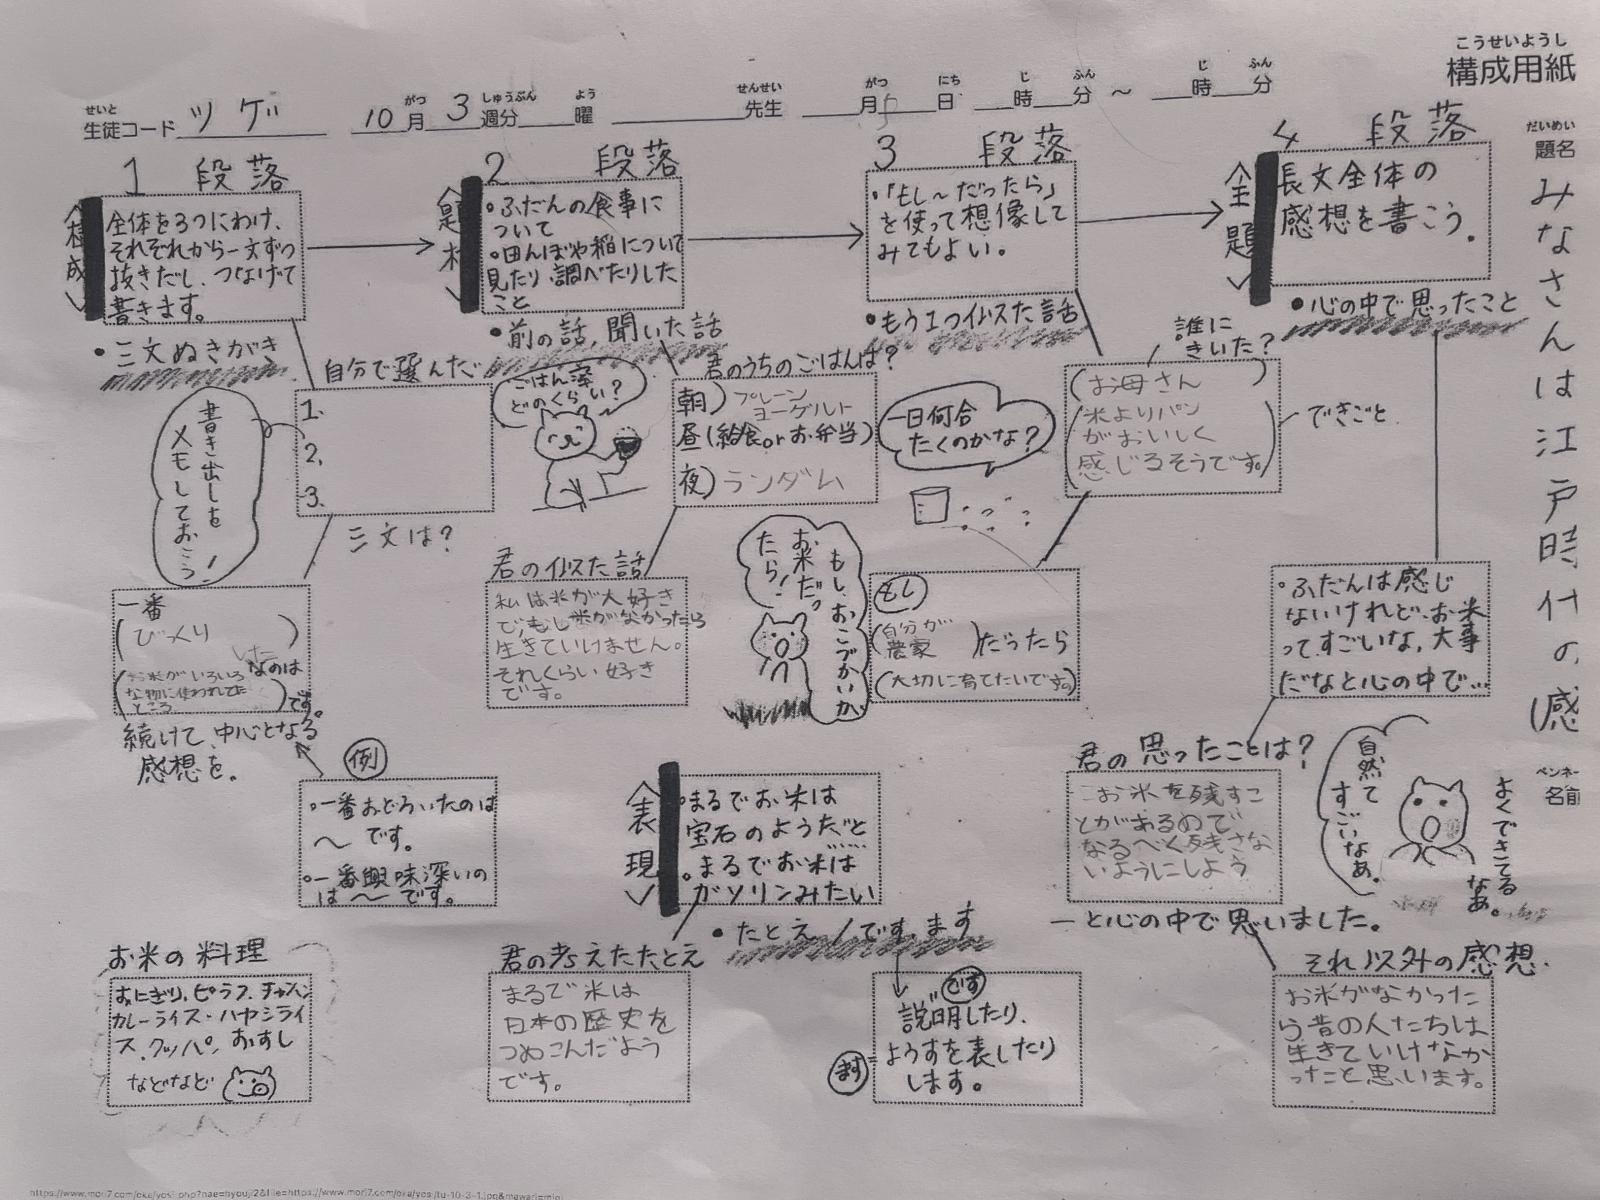 こうせいようし
構成用紙
せいと
生徒コード ツゲ
がつ しゅうぶん よう
10月 3週分 曜
せんせい
先生
がつ にち じ ふん じ ふん
月 日 時 分 ～ 時 分
だいめい
題名
みなさんは江戸時代の(感
ペンネー
名前
1 段落
<構成>
全体を3つにわけ、
それぞれから一文ずつ
抜きだし、つなげて
書きます。
•三文ぬきがき
自分で選んだ
1.
2.
3.
三文は?
書き出しを
メモしておこう!
一番
(びっくり)
した
なのは
(お米がいろいろ
な物に使われてた
ところ)です。
続けて、中心となる
感想を。
例
•一番おどろいたのは
～です。
•一番興味深いの
は～です。
お米の料理
おにぎり、ピラフ、チャーハン
カレーライス・ハヤシライ
ス、クッパ、おすし
などなど
2 段落
<題材>
•ふだんの食事に
ついて
•田んぼや稲について
見たり、調べたりした
こと
•前の話、聞いた話
ごはん、
どのくらい?
君のうちのごはんは?
朝)プレーン
ヨーグルト
昼(給食orお弁当)
夜)ランダム
君の似た話
私は米が大好き
で、もし米がなかったら
生きていけません。
それくらい好き
です。
<表現>
•まるでお米は
宝石のようだと
•まるでお米は
ガソリンみたい
•たとえ/です、ます
君の考えたたとえ
まるで米は
日本の歴史を
つめこんだよう
です。
です
説明したり、
ます
ようすを表したり
します。
3 段落
•「もし～だったら」
を使って想像して
みてもよい。
•もう1つ似た話
一日何合
たくのかな?
誰に
きいた?
(お母さん)
(米よりパン
がおいしく
感じるそうです。)
できごと
もし、おこづかいが
お米だっ
たら!
もし
(自分が
農家)だったら
(大切に育てたいです。)
4 段落
<全題>
長文全体の
感想を書こう。
•心の中で思ったこと
•ふだんは感じ
ないけれど、お米
ってすごいな、大事
だなと心の中で…
君の思ったことは?
お米を残すこ
とがあるので
なるべく残さな
いようにしよう
ーと心の中で思いました。
自然て
すごいなあ。
よくできてる
なあ。
それ以外の感想
お米がなかった
ら昔の人たちは
生きていけなか
ったと思います。